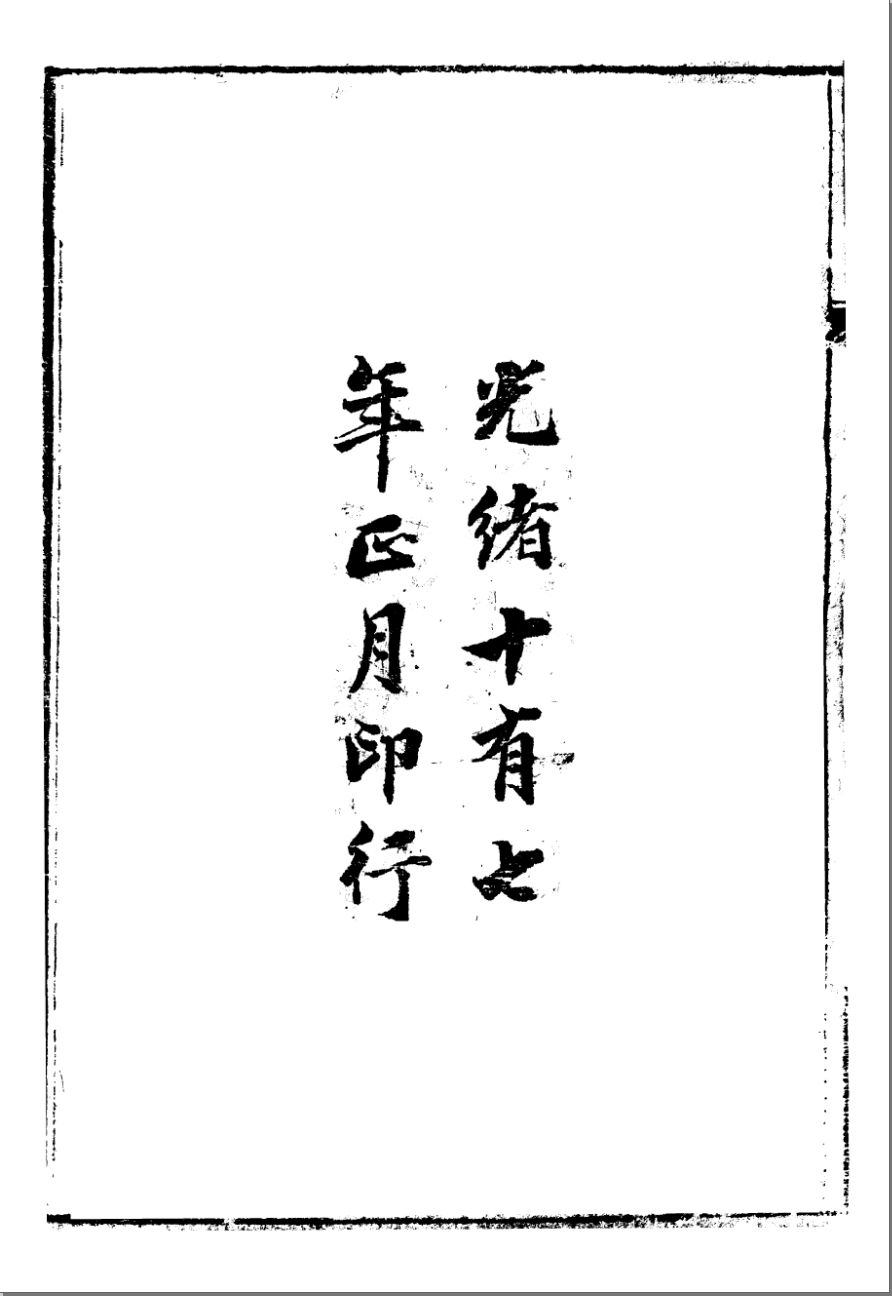 光緒十有七
年正月印行